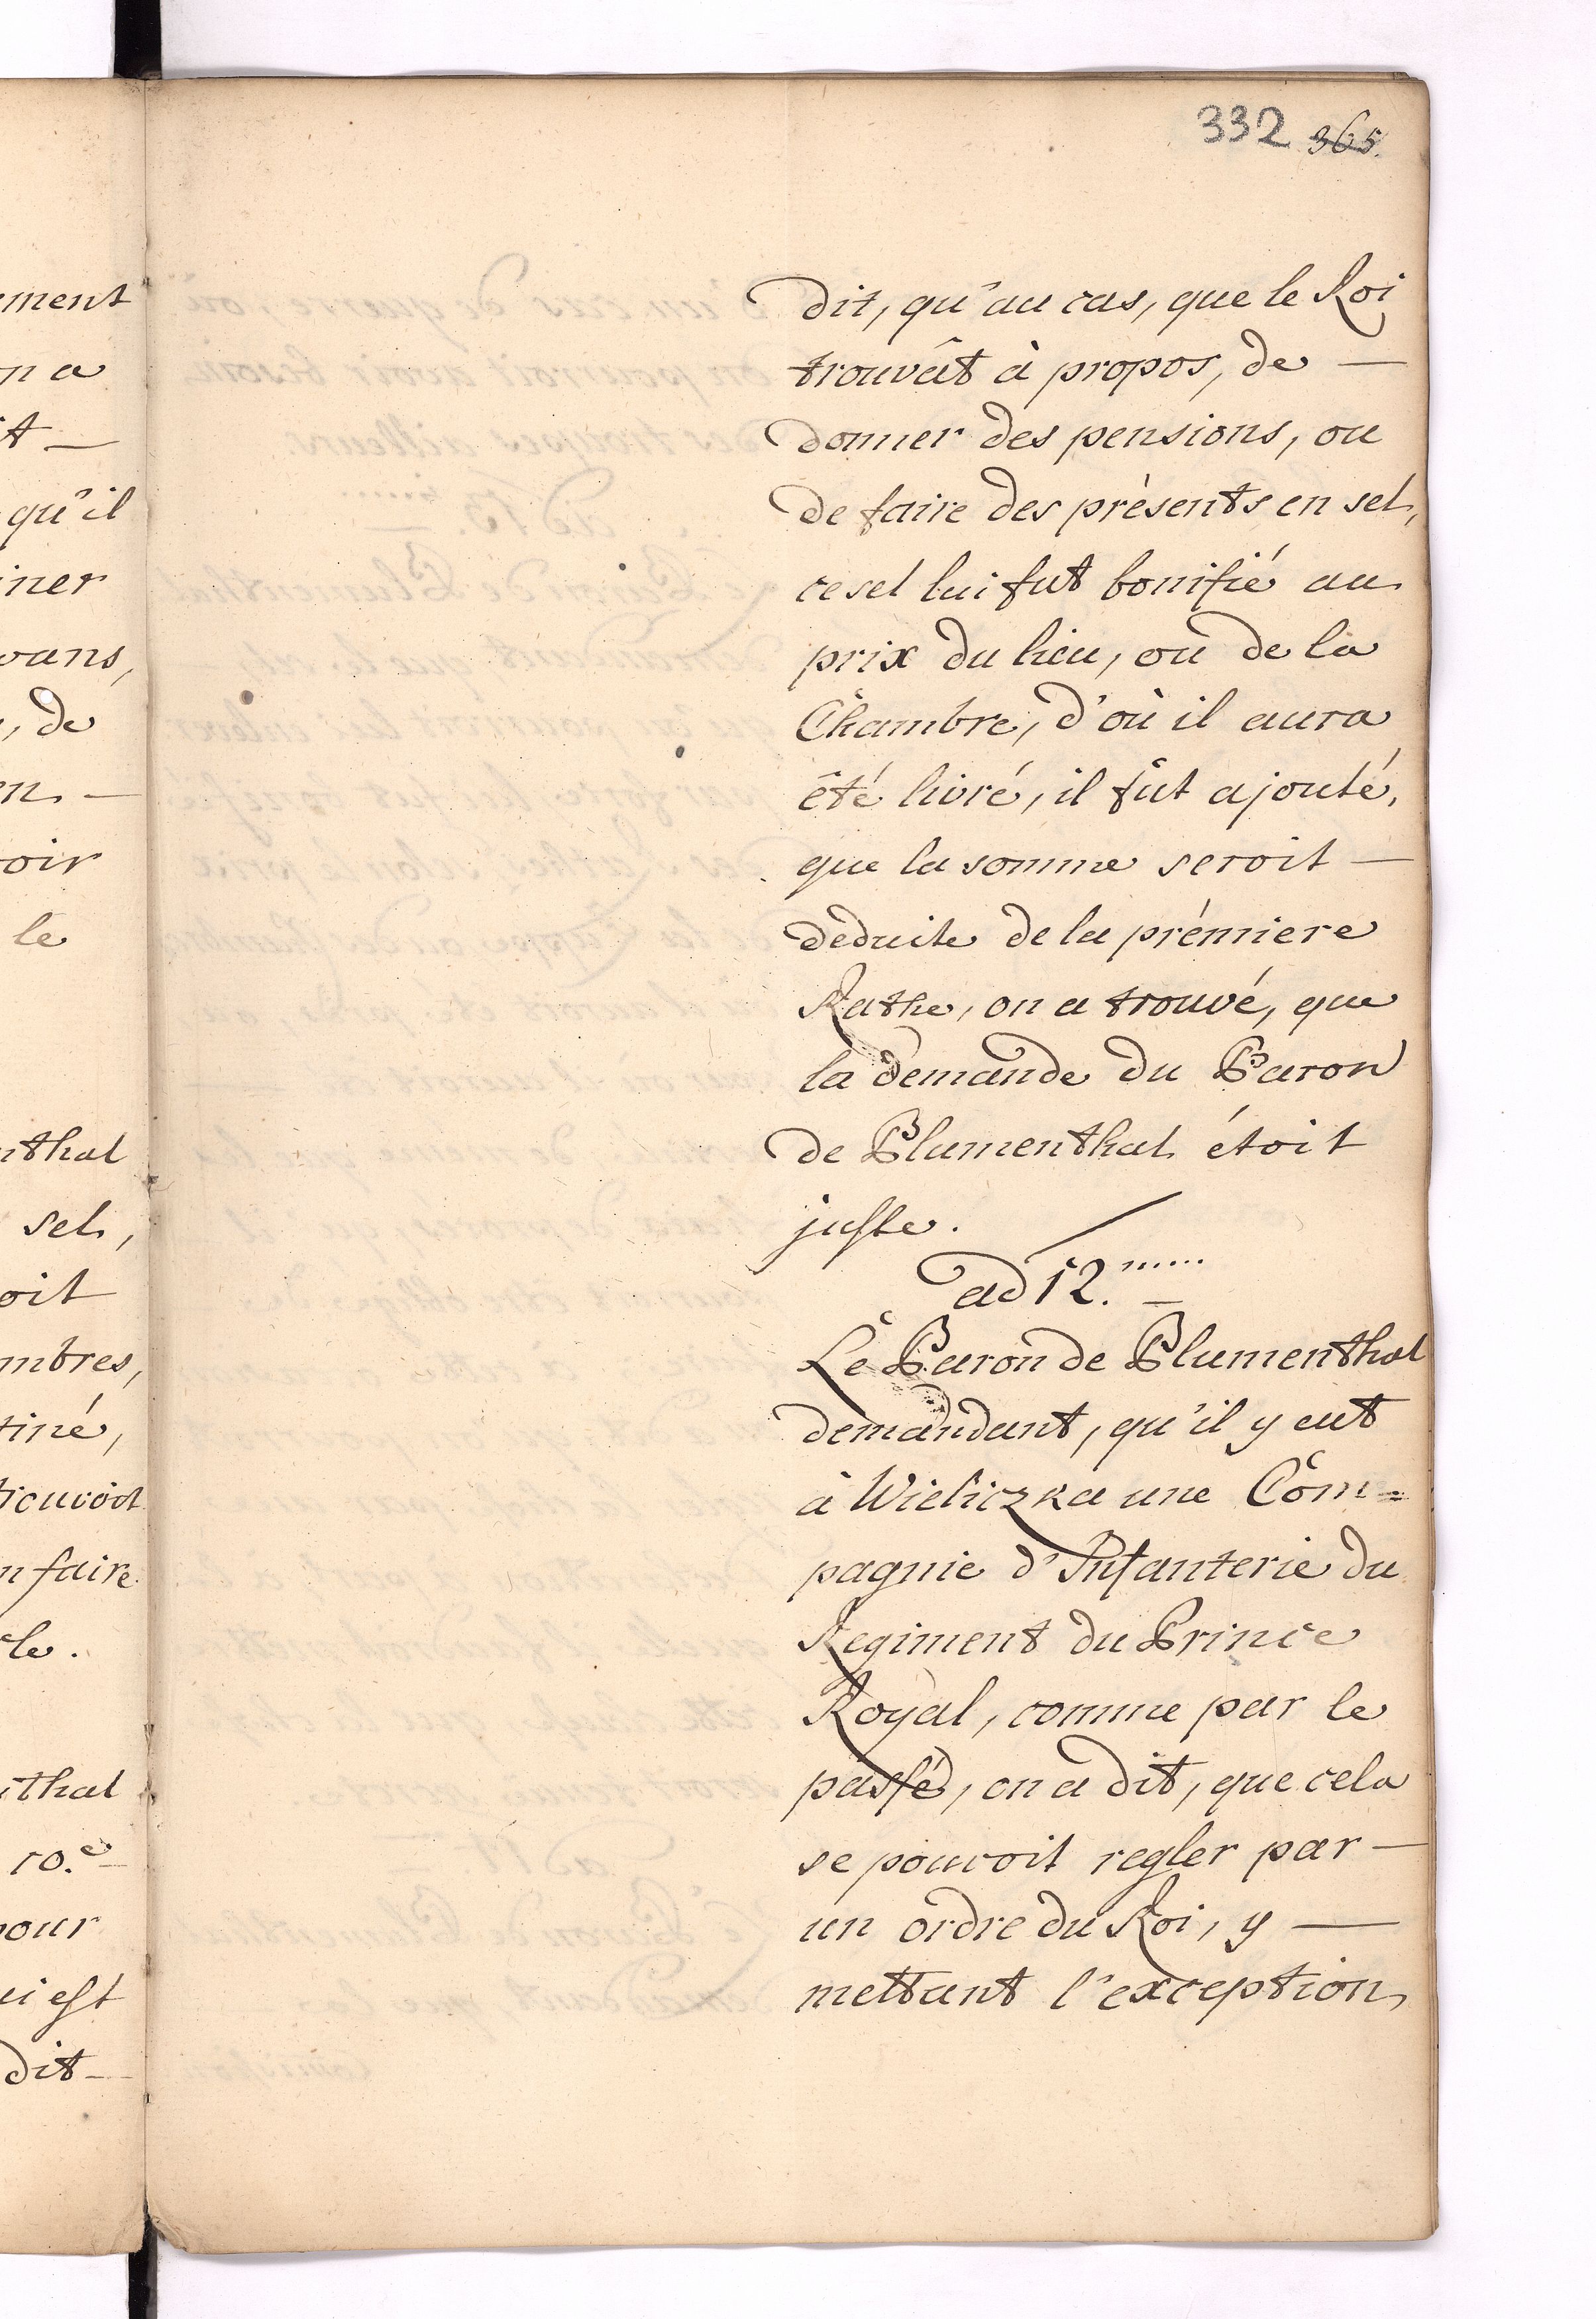 332 365.
dit, qu'au cas, que le Roi
trouvât à propos, de —
donner des pensions, ou
de faire des prèsents en sel,
ce sel lui fut bonifié au
prix du lieu, ou de la
Chambre, d'où il aura
été livré, il fut ajouté,
que la somme seroit —
deduite de la prémiere
Rathe, on a trouvé, que
la demande du Baron
de Blumenthal étoit
juste.
ad 12.
Le Baron de Blumenthal
demandant, qu'il y eut
à Wieliczka une Com=
pagnie d'Infanterie du
Regiment du Prince
Royal, comme par le
passé, on a dit, que cela
se pouvoit regler par —
un ordre du Roi, y —
mettant l'exception
ment
n a
t —
qu'il
iner
vans,
, de
en —
oir
le
nthal
sel,
oit
mbres,
tiné,
n faire
le.
thal
10.e
pour
ui est
dit —